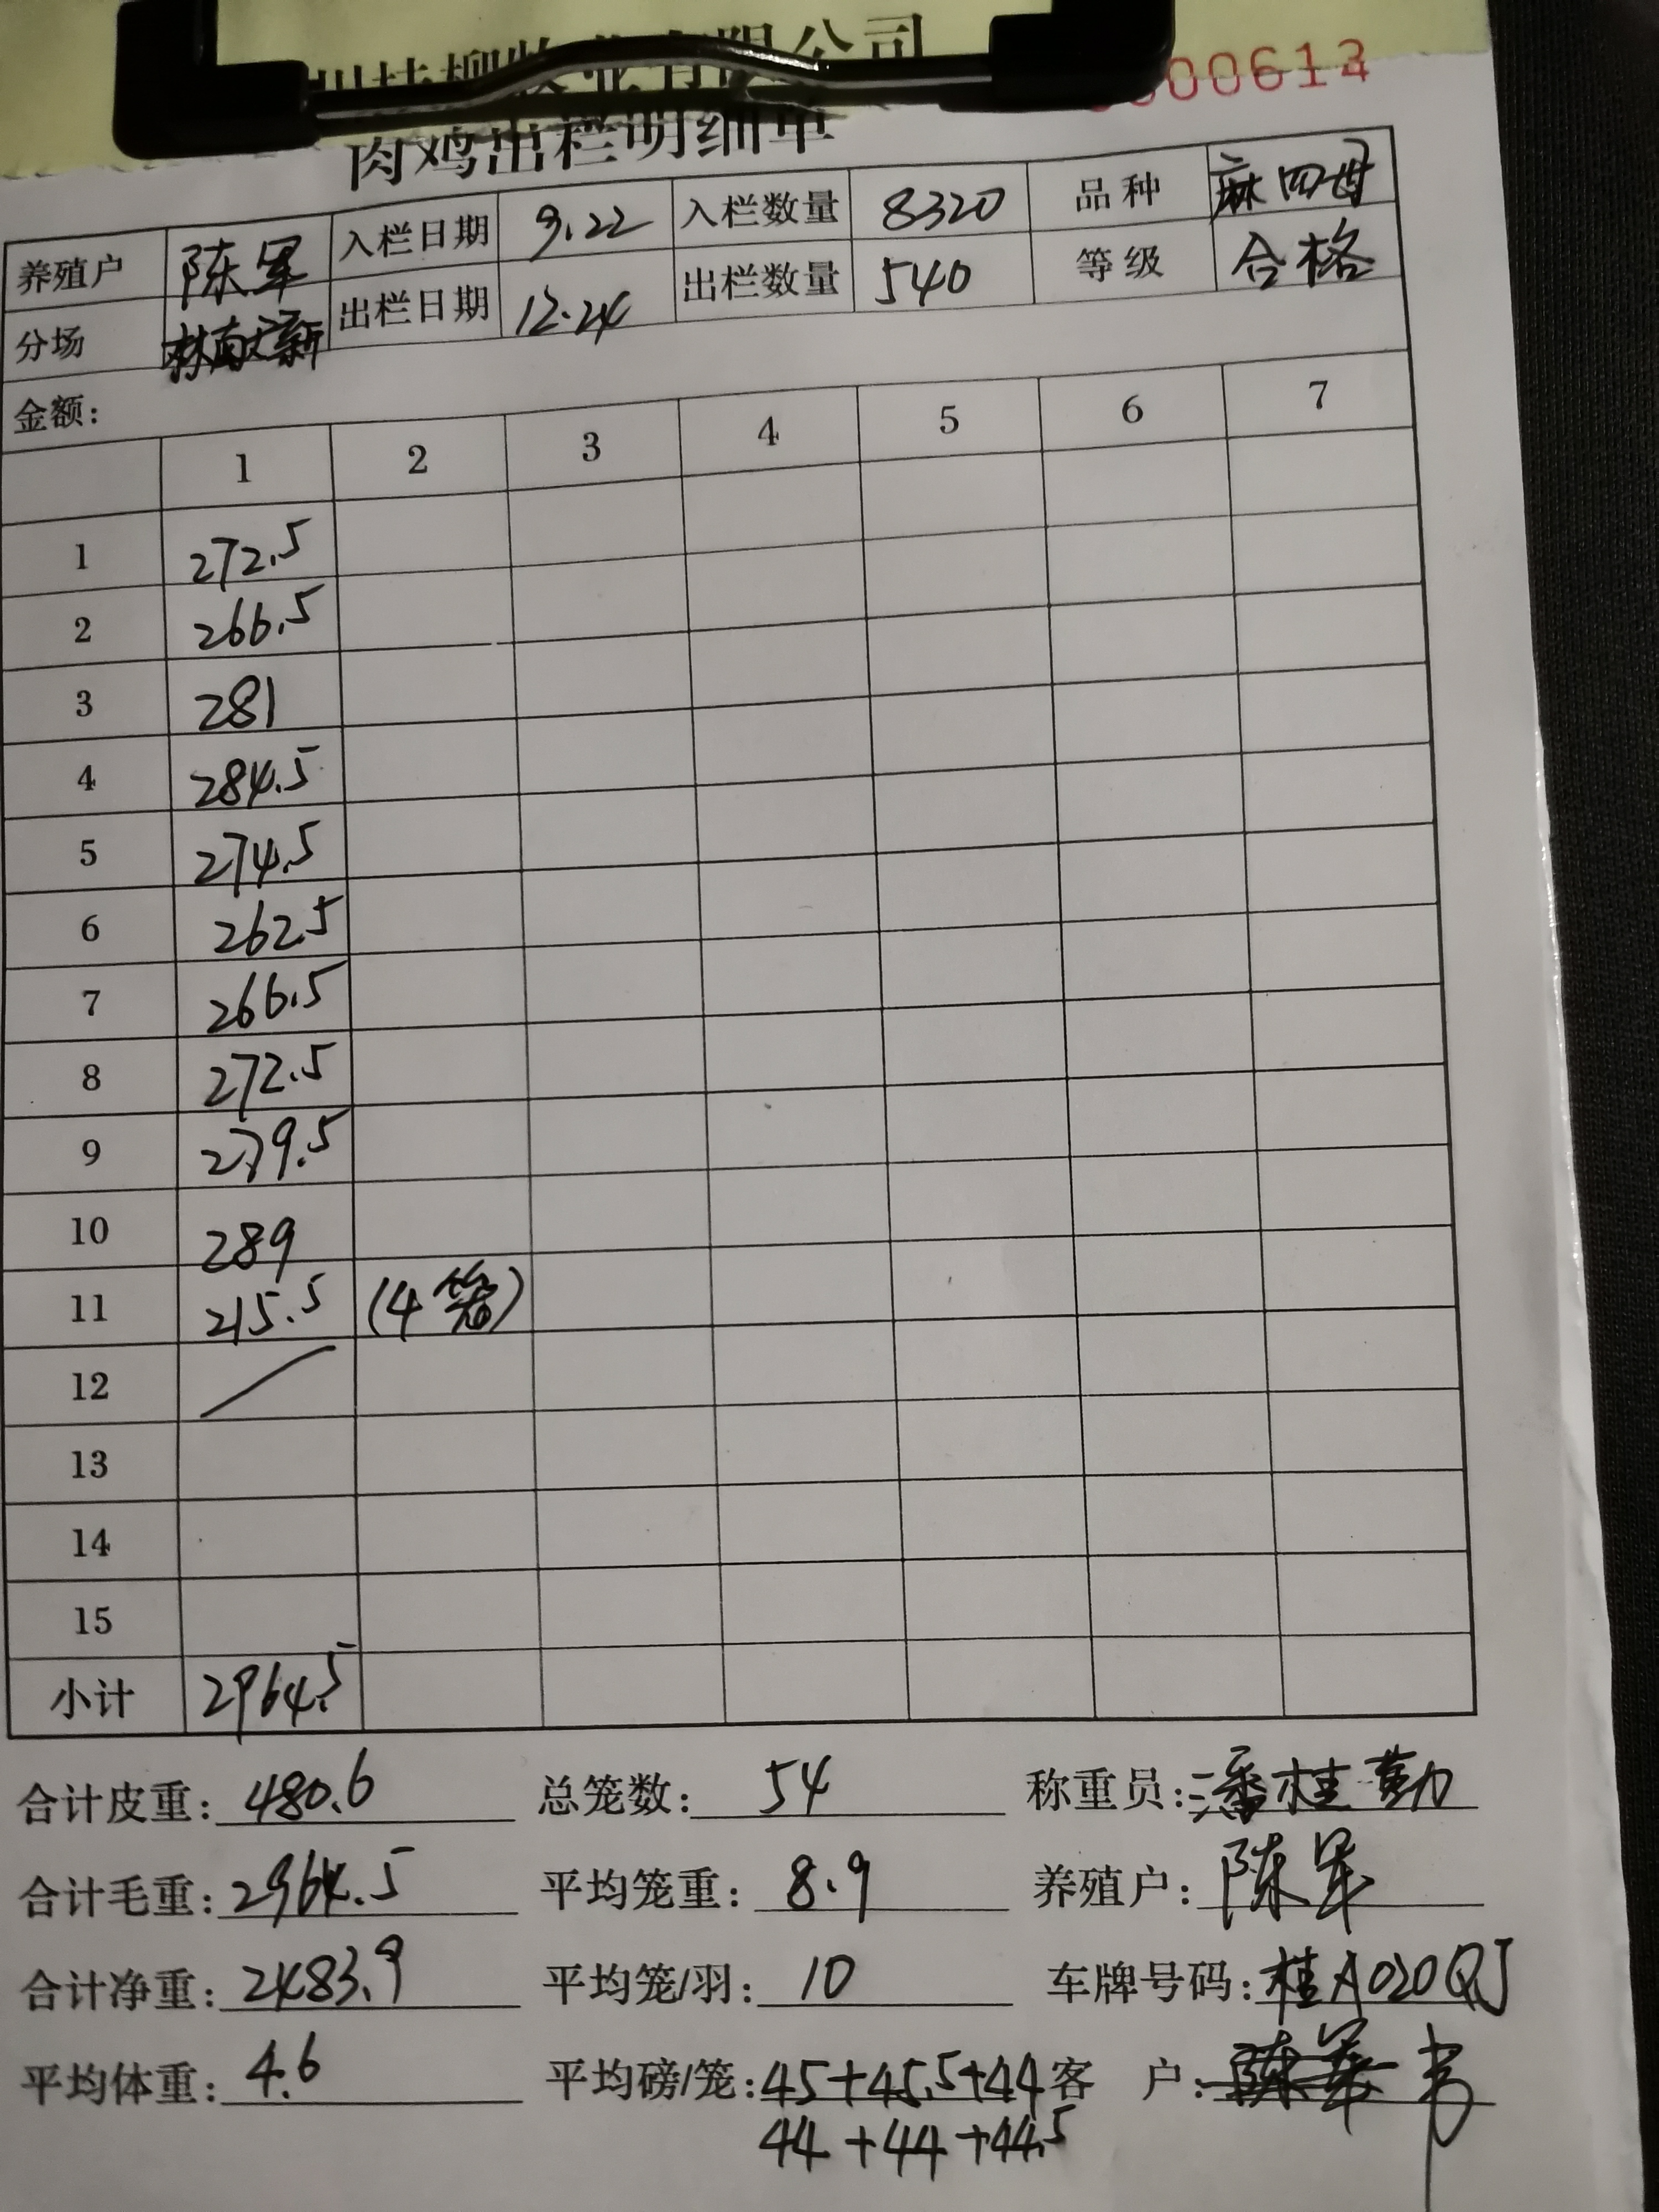 牧业有限公司
00613
肉鸡出栏明细单
养殖户 陈军 入栏日期 9.22 入栏数量 8320 品种 麻四母
分场 出栏日期 12.24 出栏数量 540 等级 合格
金额:
1 2 3 4 5 6 7
1 272.5
2 266.5
3 281
4 284.5
5 274.5
6 262.5
7 266.5
8 272.5
9 279.5
10 289
11 215.5 (4笼)
12
13
14
15
小计 2964.5
合计皮重: 480.6 总笼数: 54 称重员: 潘桂勤
合计毛重: 2964.5 平均笼重: 8.9 养殖户: 陈军
合计净重: 2483.9 平均笼/羽: 10 车牌号码: 桂A020QJ
平均体重: 4.6 平均磅/笼: 45+45.5+44 客 户:
44+44+44.5